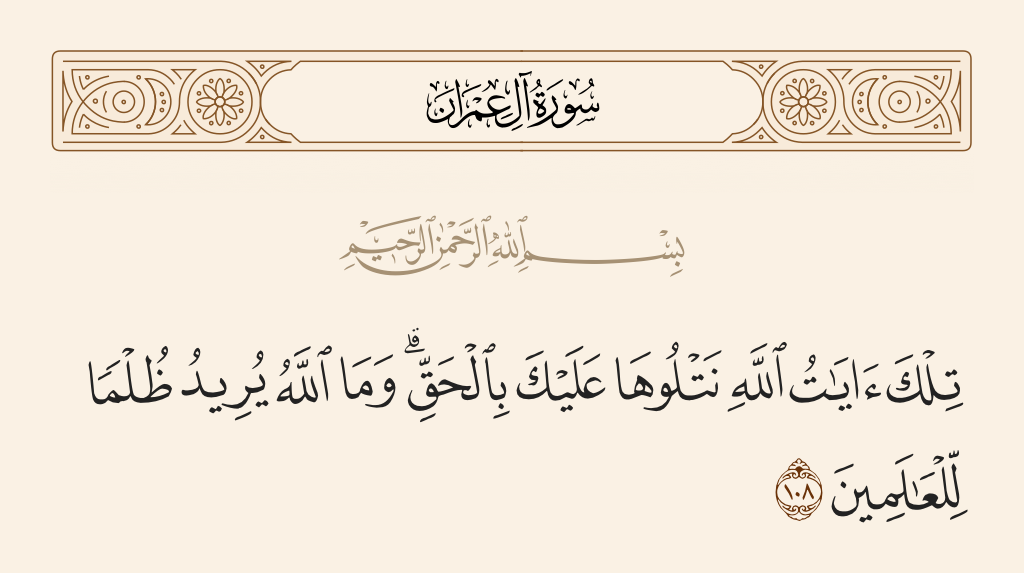 سُورَةُ آلِ عِمْرَانَ
بِسْمِ ٱللَّهِ ٱلرَّحْمَٰنِ ٱلرَّحِيمِ
تِلْكَ ءَايَٰتُ ٱللَّهِ نَتْلُوهَا عَلَيْكَ بِٱلْحَقِّ ۗ وَمَا ٱللَّهُ يُرِيدُ ظُلْمًا
لِّلْعَٰلَمِينَ ١٠٨